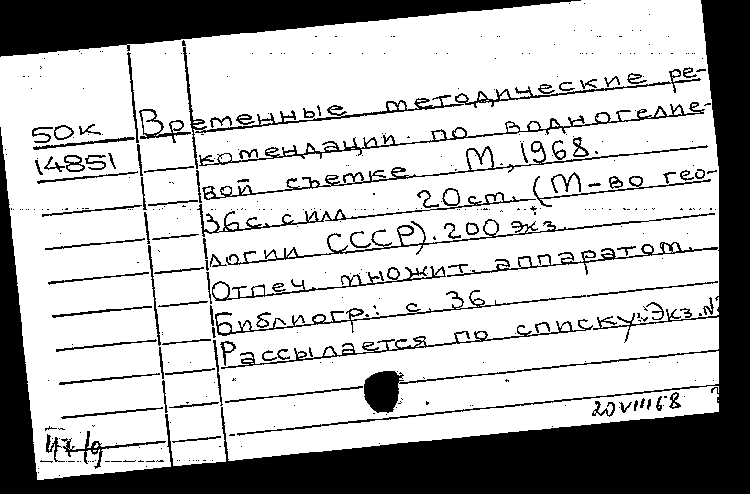 50К Временные методические ре-
14851 комендации по водногелие-
вой съемке М., 1968.
36с. с илл 20см. (М-во гео-
логии СССР). 200 экз.
Отпеч. множит. аппаратом.
Библиогр.: с. 36.
Рассылается по списку. Экз. №
20 VIII 68